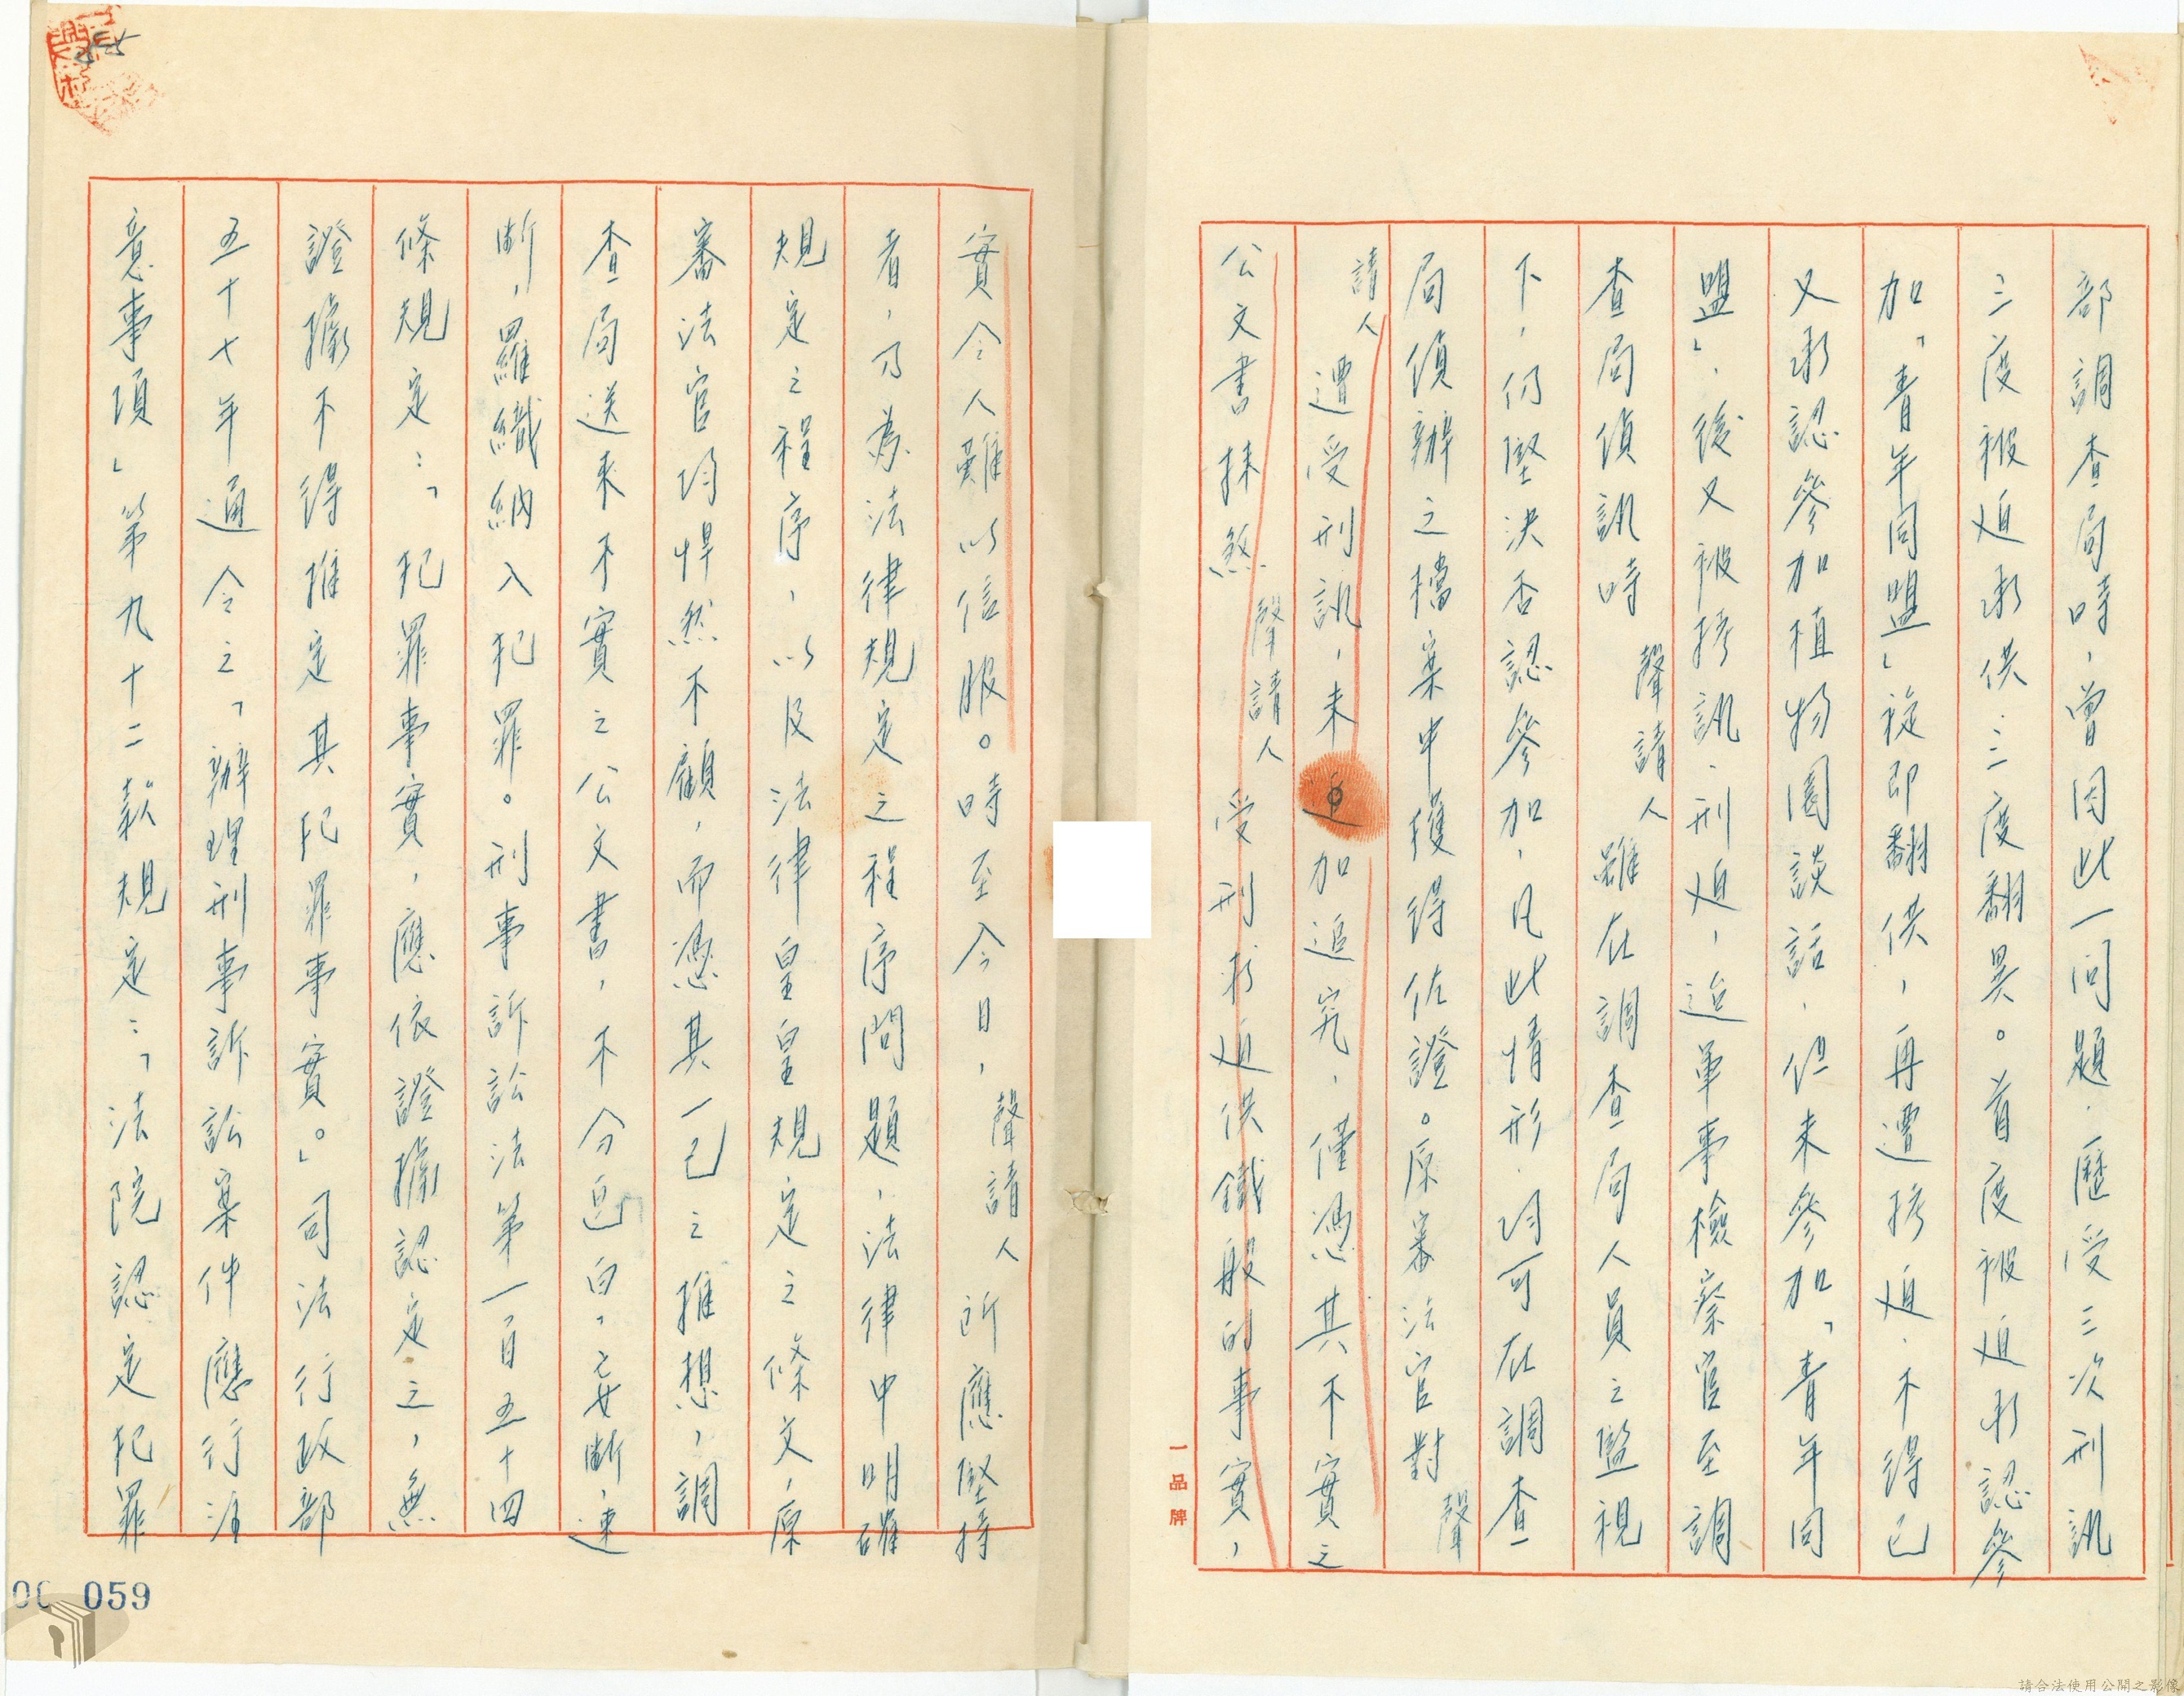 部調查局時，曾因此一問題，歷受三次刑訊
三度被迫承供，三度翻異。首度被迫承認參
加「青年同盟」旋即翻供，再遭拷迫，不得已
又承認參加植物園談話，但未參加「青年同
盟」，後又被拷訊，刑迫，迨軍事檢察官至調
查局偵訊時聲請人雖在調查局人員之監視
下，仍堅決否認參加，凡此情形，均可在調查
局偵辦之檔案中獲得佐證。原審法官對聲
請人遭受刑訊，未加追究，僅憑其不實之
公文書抹煞聲請人受刑求迫供鐵般的事實，
一品牌
實令人難以信服。時至今日，聲請人所應堅持
者，乃為法律規定之程序問題，法律中明確
規定之程序，以及法律皇皇規定之條文，原
審法官均悍然不顧，而憑其一己之推想，調
查局送來不實之公文書，不分皂白，妄斷，速
斷，羅織納入犯罪。刑事訴訟法第一百五十四
條規定：「犯罪事實，應依證據認定之，無
證據不得推定其犯罪事實。」司法行政部
五十七年通令之「辦理刑事訴訟案件應行注
意事項」第九十二款規定：「法院認定犯罪
059
請合法使用公開之影像